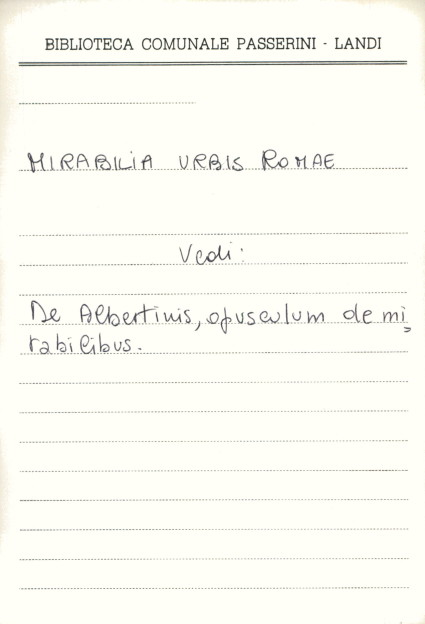 BIBLIOTECA COMUNALE PASSERINI - LANDI
MIRABILIA URBIS ROMAE
Vedi:
De Albertinis, opusculum de mi=
rabilibus.